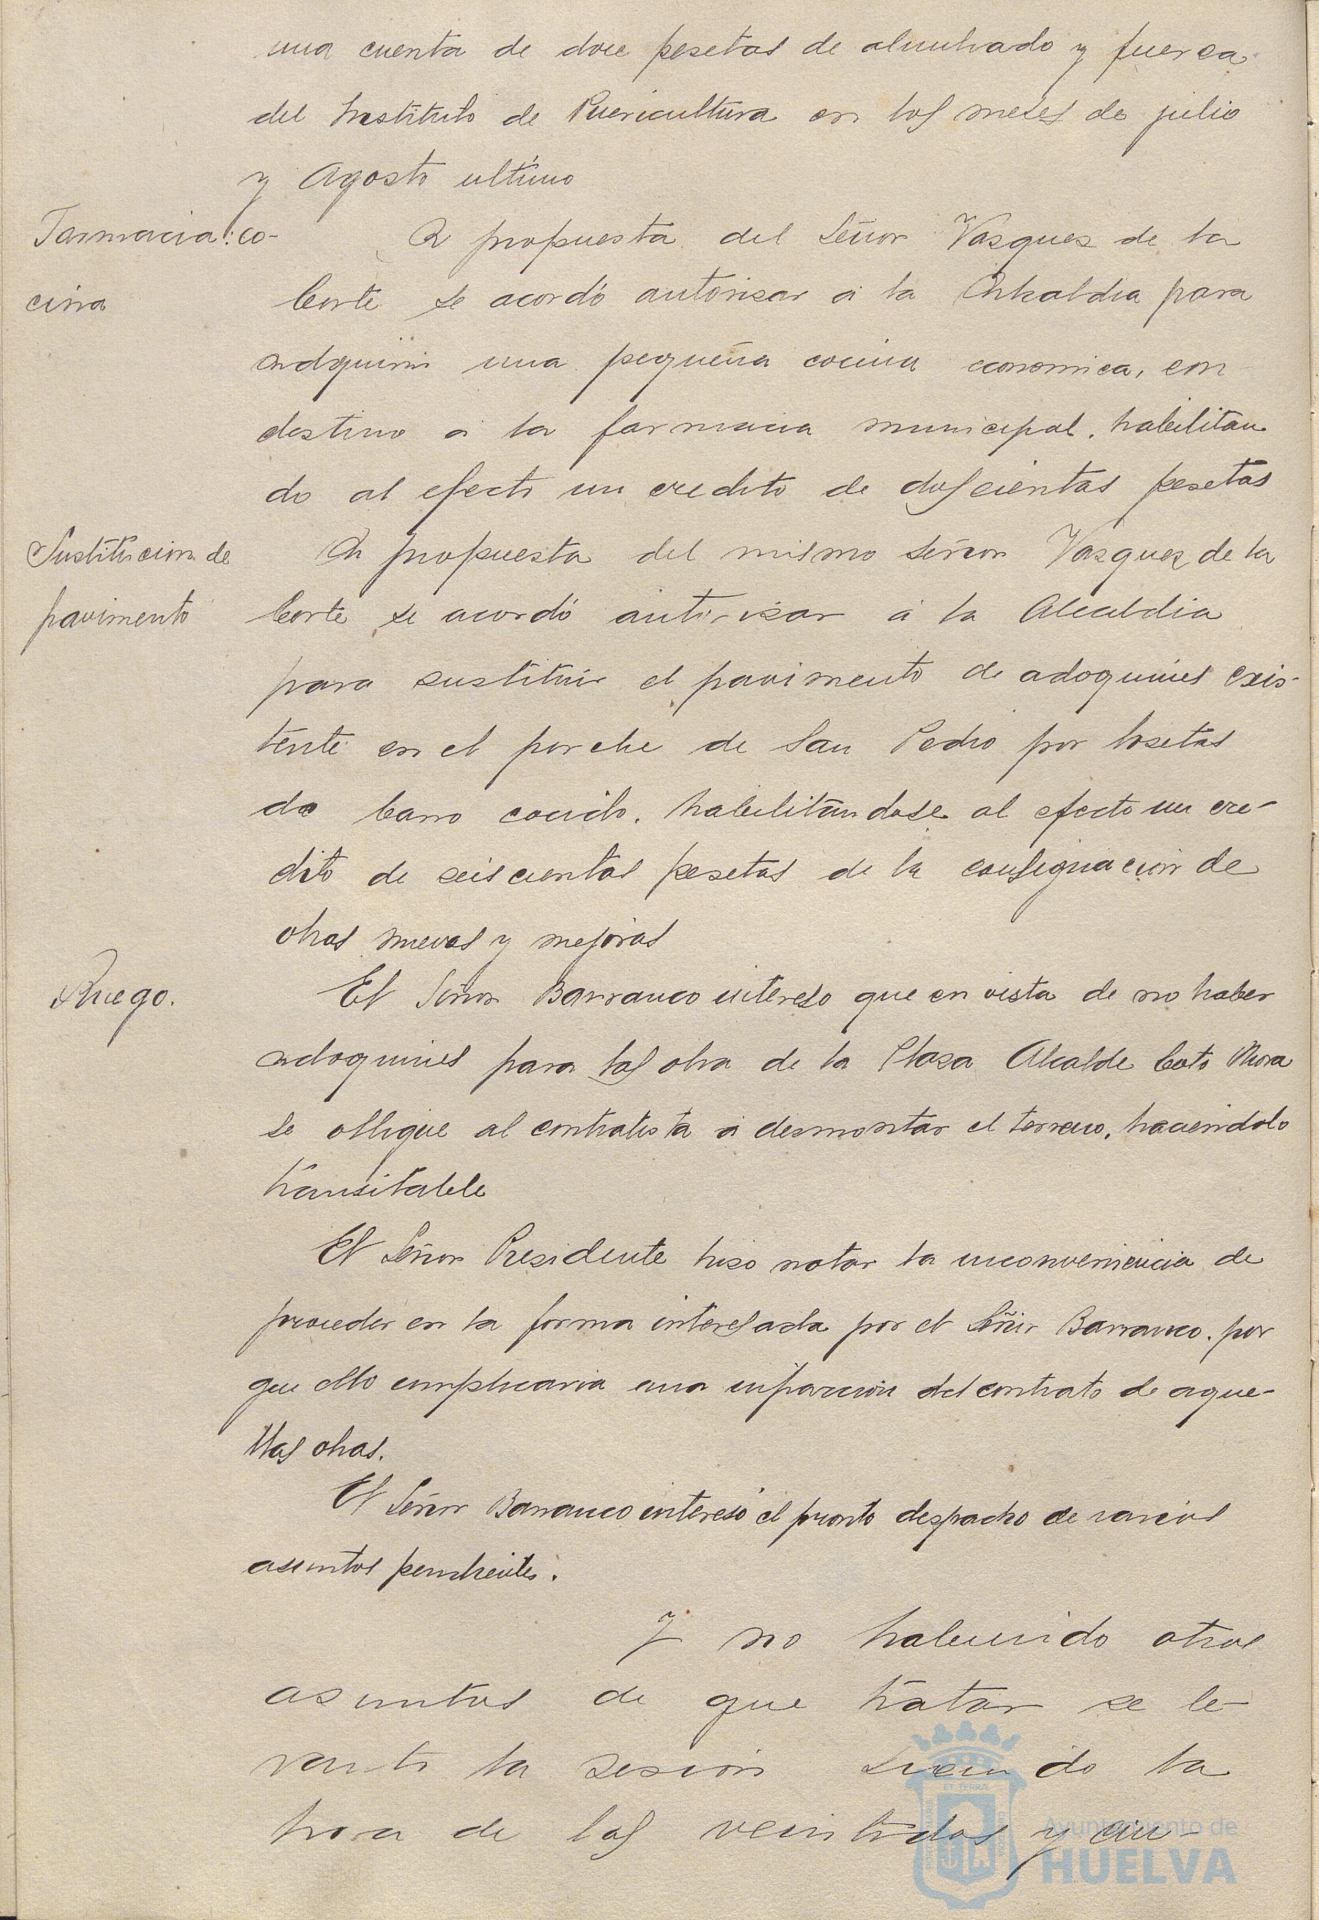 una cuenta de doce pesetas de alumbrado y fuerza
del Instituto de Puericultura en los meses de julio
y Agosto ultimo
Farmacia: co-
cina
A propuesta del Señor Vasquez de la
Corte se acordó autorizar á la Alcaldia para
adquirir una pequeña cocina economica, con
destino á la farmacia municipal, habilitan
do al efecto un credito de doscientas pesetas
Sustitucion de
pavimento
A propuesta del mismo Señor Vasquez de la
Corte se acordó autorizar á la Alcaldia
para sustituir el pavimento de adoquines exis-
tente en el porche de San Pedro por losetas
de barro cocido, habilitandose al efecto un cre-
dito de seiscientas pesetas de la consignacion de
obras nuevas y mejoras
Ruego.
El Señor Barranco intereso que en vista de no haber
adoquines para las obra de la Plaza Alcalde Coto Mora
se obligue al contratista á desmontar el terreno, haciendolo
transitable
El Señor Presidente hizo notar la inconveniencia de
proceder en la forma interesada por el Señor Barranco, por
que ello implicaria una infraccion del contrato de aque-
llas obras.
El Señor Barranco interesó el pronto despacho de varios
asuntos pendientes.
Y no habiendo otros
asuntos de que tratar se le-
vanto la sesion siendo la
hora de las veintidos y cin-
ET TERRA
Ayuntamiento de
HUELVA